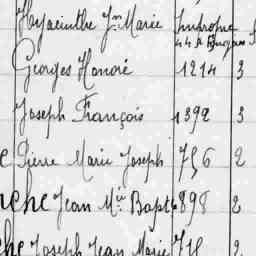 Hyacinthe Jn Marie Impropre
Georges Honoré 1214 3
Joseph François 1392 3
e Pierre Marie Joseph 756 2
che Jean Mie Bapt 898 2
he Joseph Jean Marie